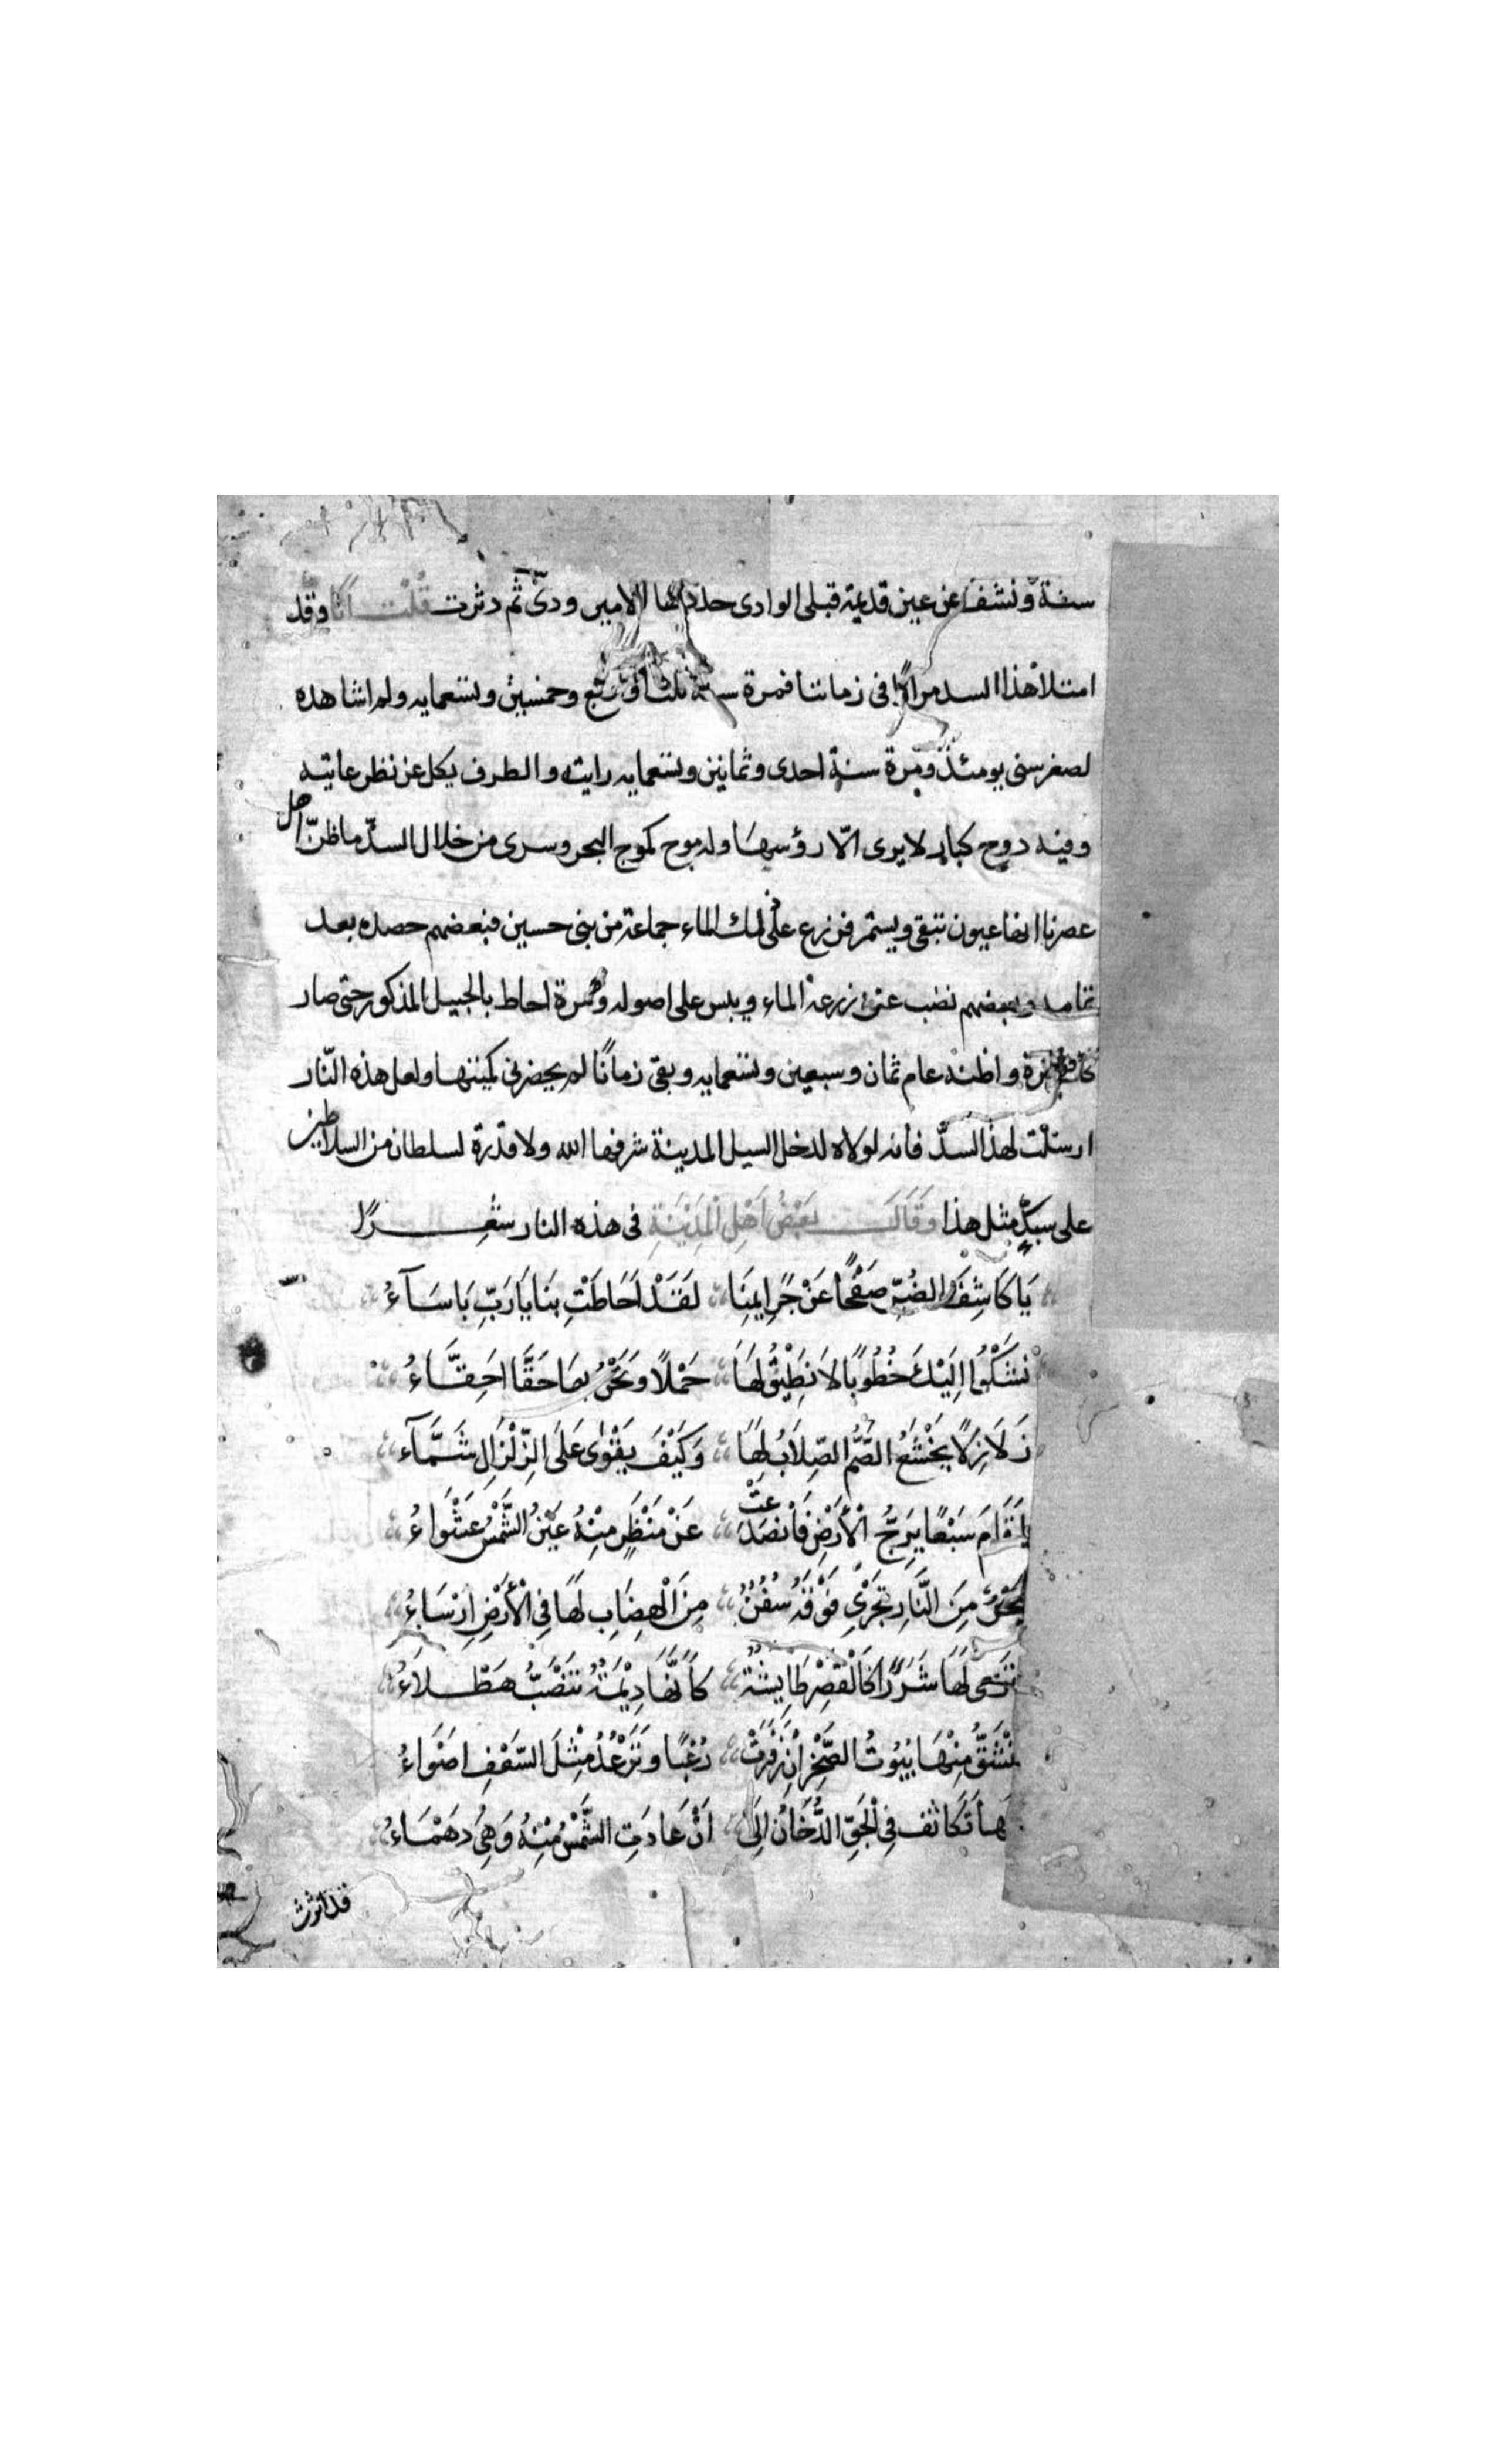 سنة ونشف عن عين قديمة قبلى الوادى جددها الامير ودىّ ثم دثرت قلت انا وقد
امتلا هذا السد مرارًا فى زماننا فمرة سنة ثلث او ربع وخمسين وتسعمايه ولم اشاهده
لصغر سنى يومئذ ومرة سنة احدى وثمانين وتسعمايه رايته والطرف يكل عن نظر غايته
وفيه دوح كبار لا يرى الّا رؤسها وله موج كموج البحر وسرى من خلال السدّ ما ظنّ اهل
عصرنا انها عيون تبقى ويستمر فزرع على ذلك الماء جماعة من بنى حسين فبعضهم حصده بعد
تمامه وبعضهم نضب عن زرعه الماء ويبس على اصوله ومرة احاط بالجبيل المذكور حتى صار
واظنه عام ثمان وسبعين وتسعمايه وبقى زمانًا لم يحضرنى كميتها ولعل هذه النّار
ارسلت لهذا السدّ فانه لولاه لدخل السيل المدينة شرفها الله ولا قدرة لسلطان من السلاطين
على سدٍّ مثل هذا وَقَالَ بَعْضُ اَهْلِ الْمَدِيْنَةِ فى هذه النار شعرًا
يَا كَاشِفَ الضُرِّ صَفْحًا عَنْ جَرَايمِنَا لَقَدْ اَحَاطَتْ بِنَا يَا رَبِّ بَاسَآءُ
نَشْكُوا اِلَيْكَ خُطُوبًا لَا نَطِيْقُ لَهَا حَمْلًا وَنَحْنُ بِهَا حَقًّا اَحِقَّاءُ
زَلَازِلًا يَخْشَعُ الصُّمُّ الصِّلَابُ لَهَا وَكَيْفَ يَقْوٰى عَلَى الزِّلْزَالِ شَمَّآء
اَقَامَ سَبْعًا يَرَجُّ الْأَرْضَ فَانْصَدَعَتْ عَنْ مَنْظَرٍ مِنْهُ عَيْنُ الشَّمْسِ عَشْوَاءُ
بَحْرٌ مِنَ النَّارِ تَجْرِىْ فَوْقَهُ سُفُنٌ مِنَ الْهِضَابِ لَهَا فِى الْأَرْضِ اِرْسَاءُ
تَرْمِى لَهَا شَرَرًا كَالْقَصْرِ طَايِشَةً كَأَنَّهَا دِيْمَةٌ تَنْصَبُّ هَطْلَاءُ
تَنْشَقُّ مِنْهَا بُيُوتُ الصَّخْرِ اِنْ زَفَرَتْ رُعْبًا وَتَرْعُدُ مِثْلَ السَّعَفِ اَضْوَاءُ
هَا تَكَاثَفَ فِى الْجَوِّ الدُّخَانُ اِلَى اَنْ عَادَتِ الشَّمْسُ مِنْهُ وَهِىَ دَهْمَاءُ
قد اثرت